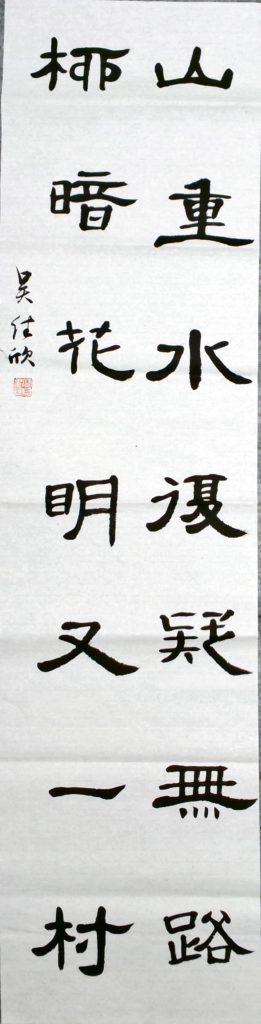 山重水復疑無路
柳暗花明又一村
吴仕欣